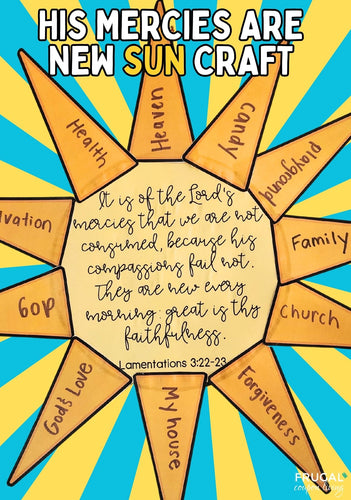 HIS MERCIES ARE
NEW SUN CRAFT
Health
Heaven
candy
playground
lvation
Family
GOD
Church
God's Love
My house
Forgiveness
It is of the Lord's
mercies that we are not
consumed, because his
compassions fail not.
They are new every
morning: great is thy
faithfulness.
Lamentations 3:22-23
FRUGAL
coupon living